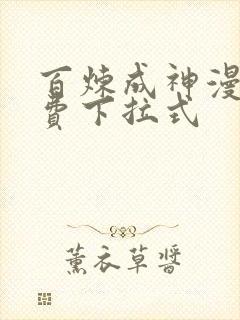 百炼成神漫
费下拉式
薰衣草醬